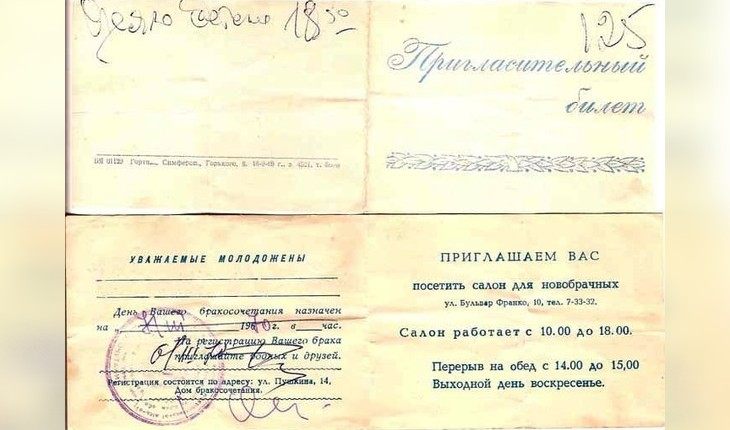 18 30
125
Пригласительный
билет
Симфероп., Горького, 8.
УВАЖАЕМЫЕ МОЛОДОЖЕНЫ
День Вашего бракосочетания назначен
на 196 г. в час.
На регистрацию Вашего брака
приглашайте родных и друзей.
Регистрация состоится по адресу: ул. Пушкина, 14,
Дом бракосочетания.
ПРИГЛАШАЕМ ВАС
посетить салон для новобрачных
ул. Бульвар Франко, 10, тел. 7-33-32.
Салон работает с 10.00 до 18.00.
Перерыв на обед с 14.00 до 15,00
Выходной день воскресенье.